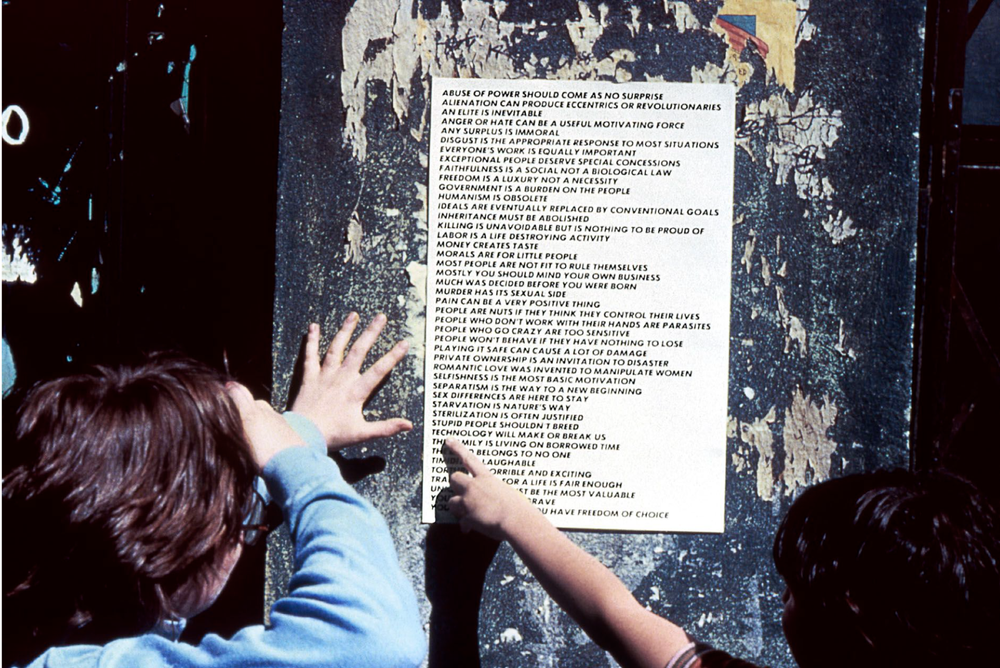 ABUSE OF POWER SHOULD COME AS NO SURPRISE
ALIENATION CAN PRODUCE ECCENTRICS OR REVOLUTIONARIES
AN ELITE IS INEVITABLE
ANGER OR HATE CAN BE A USEFUL MOTIVATING FORCE
ANY SURPLUS IS IMMORAL
DISGUST IS THE APPROPRIATE RESPONSE TO MOST SITUATIONS
EVERYONE'S WORK IS EQUALLY IMPORTANT
EXCEPTIONAL PEOPLE DESERVE SPECIAL CONCESSIONS
FAITHFULNESS IS A SOCIAL NOT A BIOLOGICAL LAW
FREEDOM IS A LUXURY NOT A NECESSITY
GOVERNMENT IS A BURDEN ON THE PEOPLE
HUMANISM IS OBSOLETE
IDEALS ARE EVENTUALLY REPLACED BY CONVENTIONAL GOALS
INHERITANCE MUST BE ABOLISHED
KILLING IS UNAVOIDABLE BUT IS NOTHING TO BE PROUD OF
LABOR IS A LIFE DESTROYING ACTIVITY
MONEY CREATES TASTE
MORALS ARE FOR LITTLE PEOPLE
MOST PEOPLE ARE NOT FIT TO RULE THEMSELVES
MOSTLY YOU SHOULD MIND YOUR OWN BUSINESS
MUCH WAS DECIDED BEFORE YOU WERE BORN
MURDER HAS ITS SEXUAL SIDE
PAIN CAN BE A VERY POSITIVE THING
PEOPLE ARE NUTS IF THEY THINK THEY CONTROL THEIR LIVES
PEOPLE WHO DON'T WORK WITH THEIR HANDS ARE PARASITES
PEOPLE WHO GO CRAZY ARE TOO SENSITIVE
PEOPLE WON'T BEHAVE IF THEY HAVE NOTHING TO LOSE
PLAYING IT SAFE CAN CAUSE A LOT OF DAMAGE
PRIVATE OWNERSHIP IS AN INVITATION TO DISASTER
ROMANTIC LOVE WAS INVENTED TO MANIPULATE WOMEN
SELFISHNESS IS THE MOST BASIC MOTIVATION
SEPARATISM IS THE WAY TO A NEW BEGINNING
SEX DIFFERENCES ARE HERE TO STAY
STARVATION IS NATURE'S WAY
STERILIZATION IS OFTEN JUSTIFIED
STUPID PEOPLE SHOULDN'T BREED
TECHNOLOGY WILL MAKE OR BREAK US
IS LIVING ON BORROWED TIME
BELONGS TO NO ONE
LAUGHABLE
AND EXCITING
A LIFE IS FAIR ENOUGH
BE THE MOST VALUABLE
HAVE FREEDOM OF CHOICE